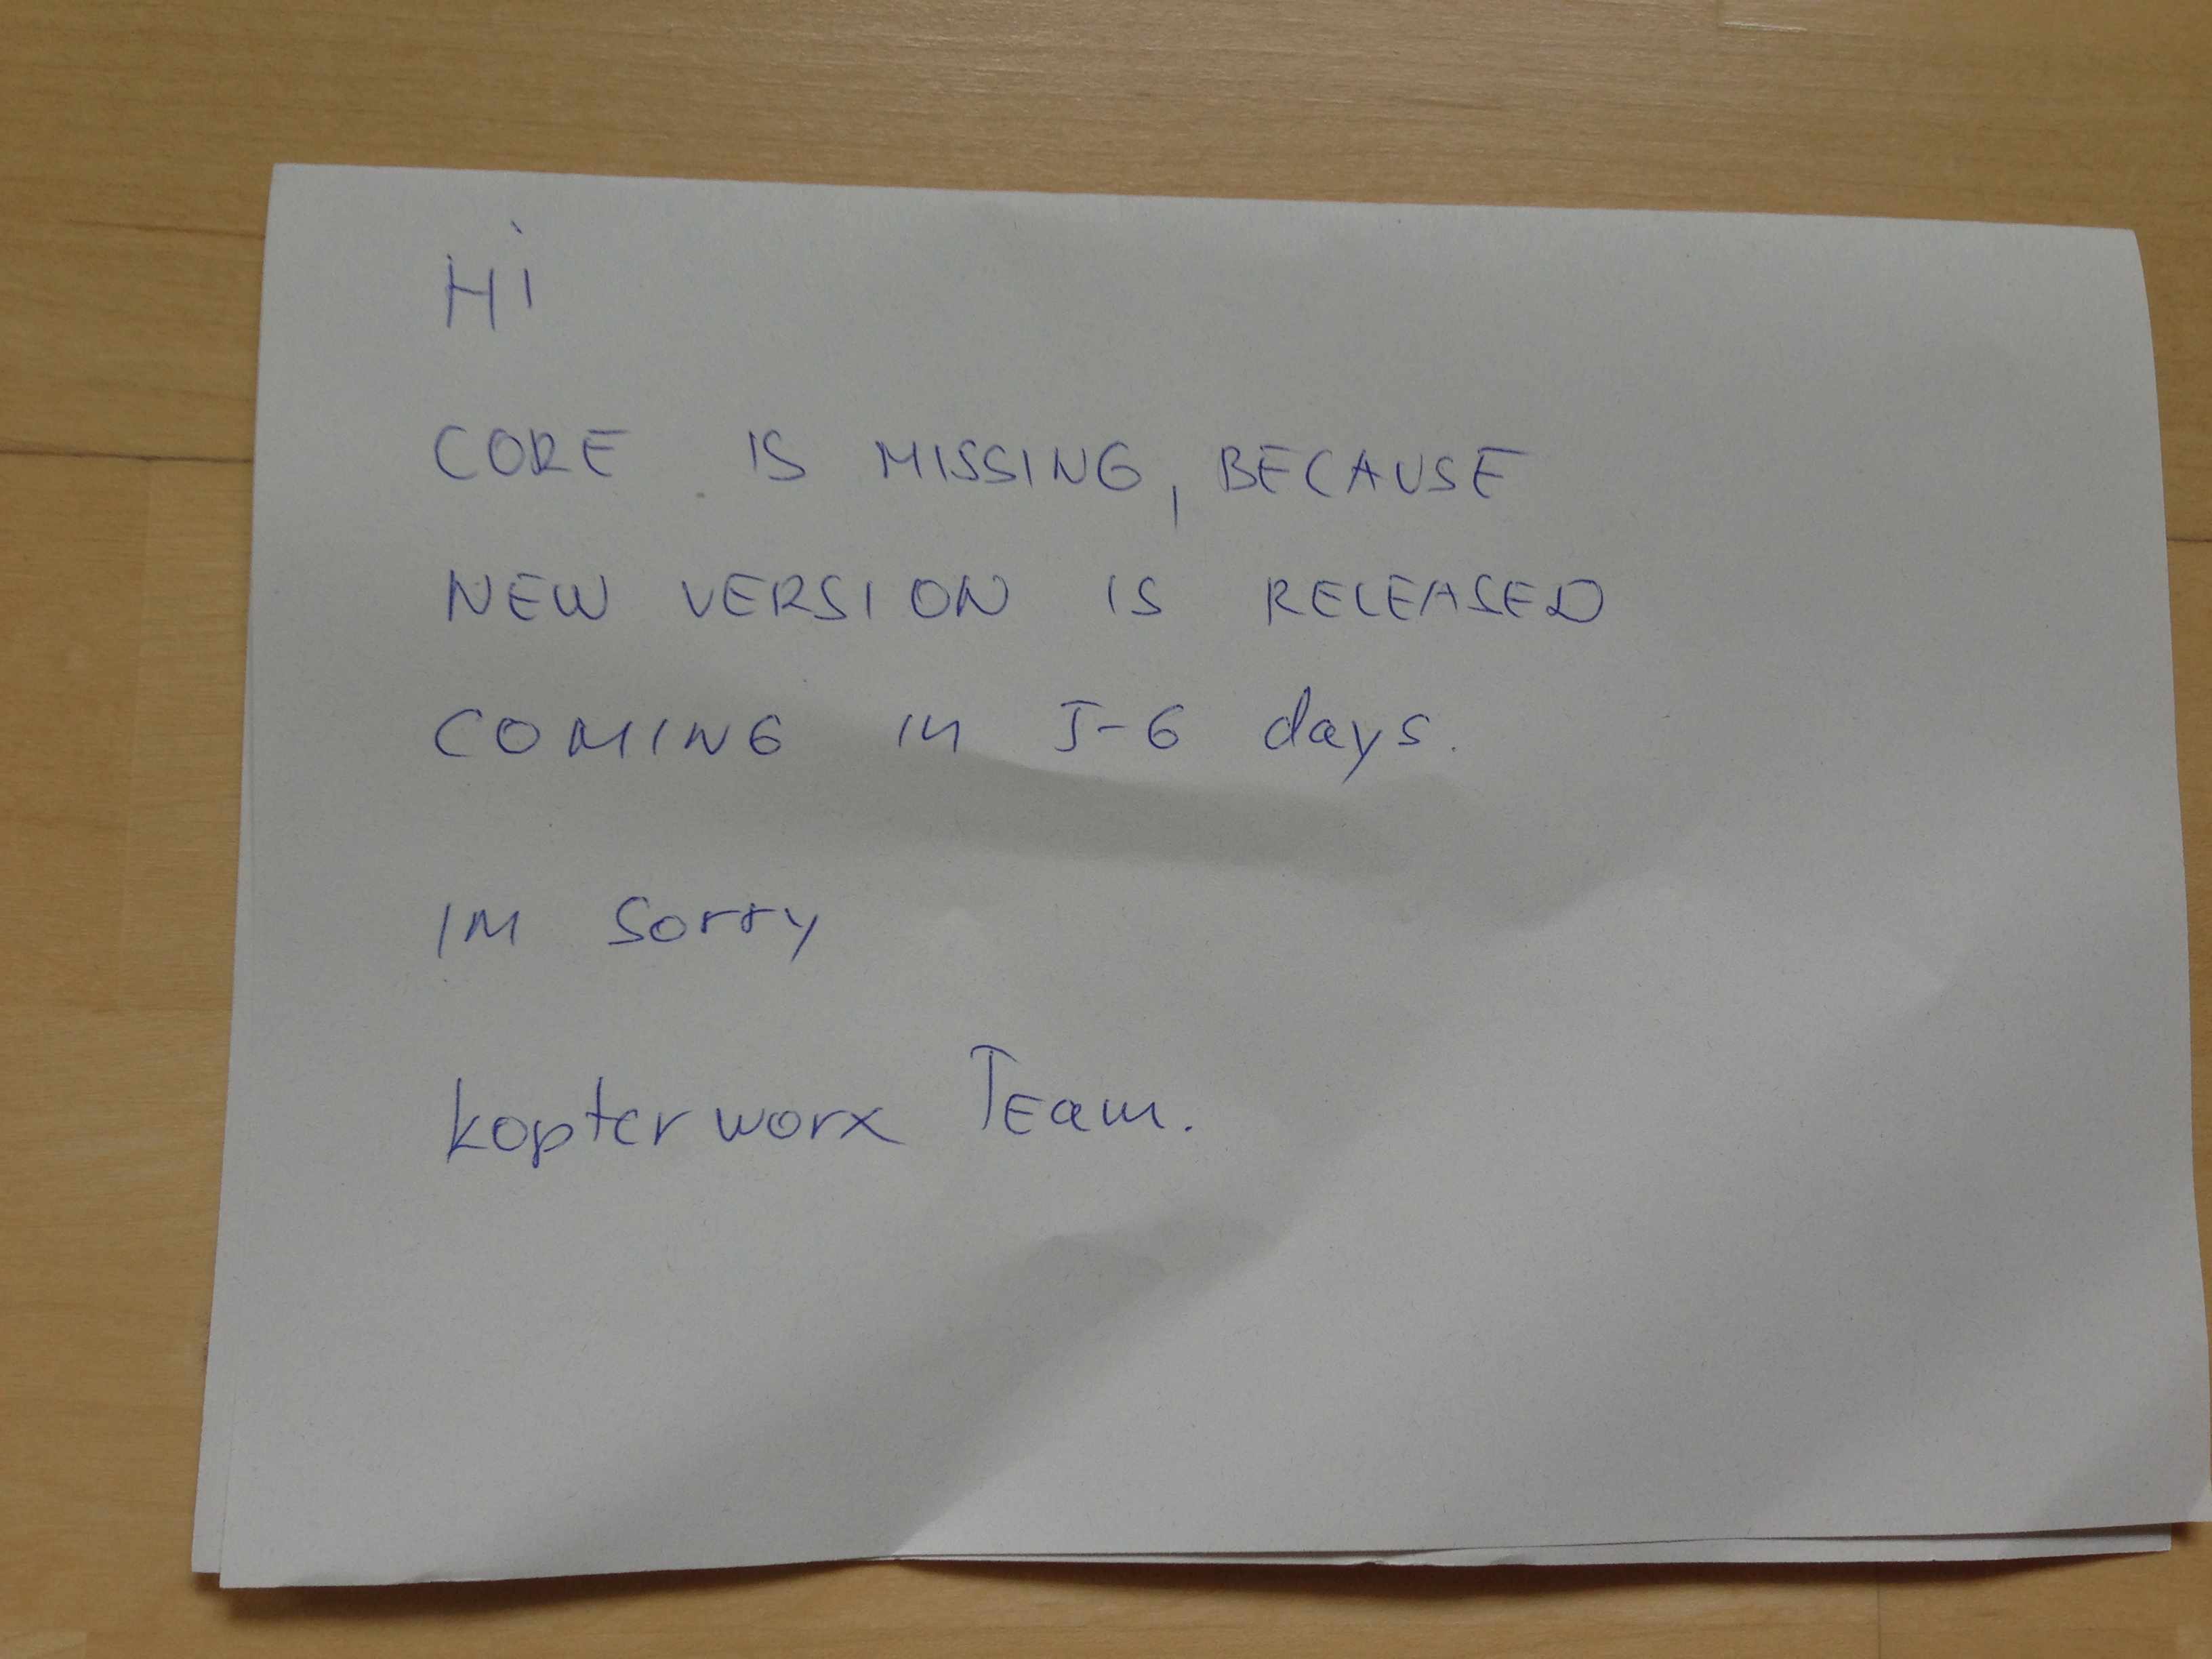 Hi
CORE IS MISSING, BECAUSE
NEW VERSION IS RELEASED
COMING IN 5-6 days.
IM Sorry
kopterworx TEam.